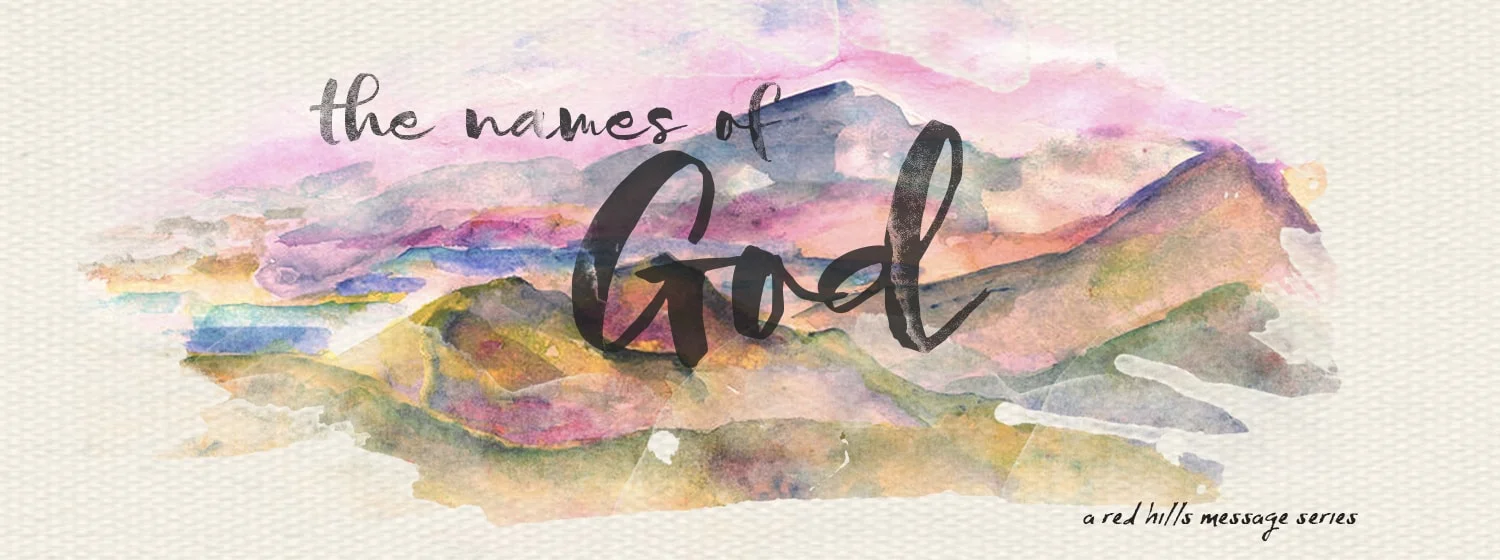 the names of
God
a red hills message series